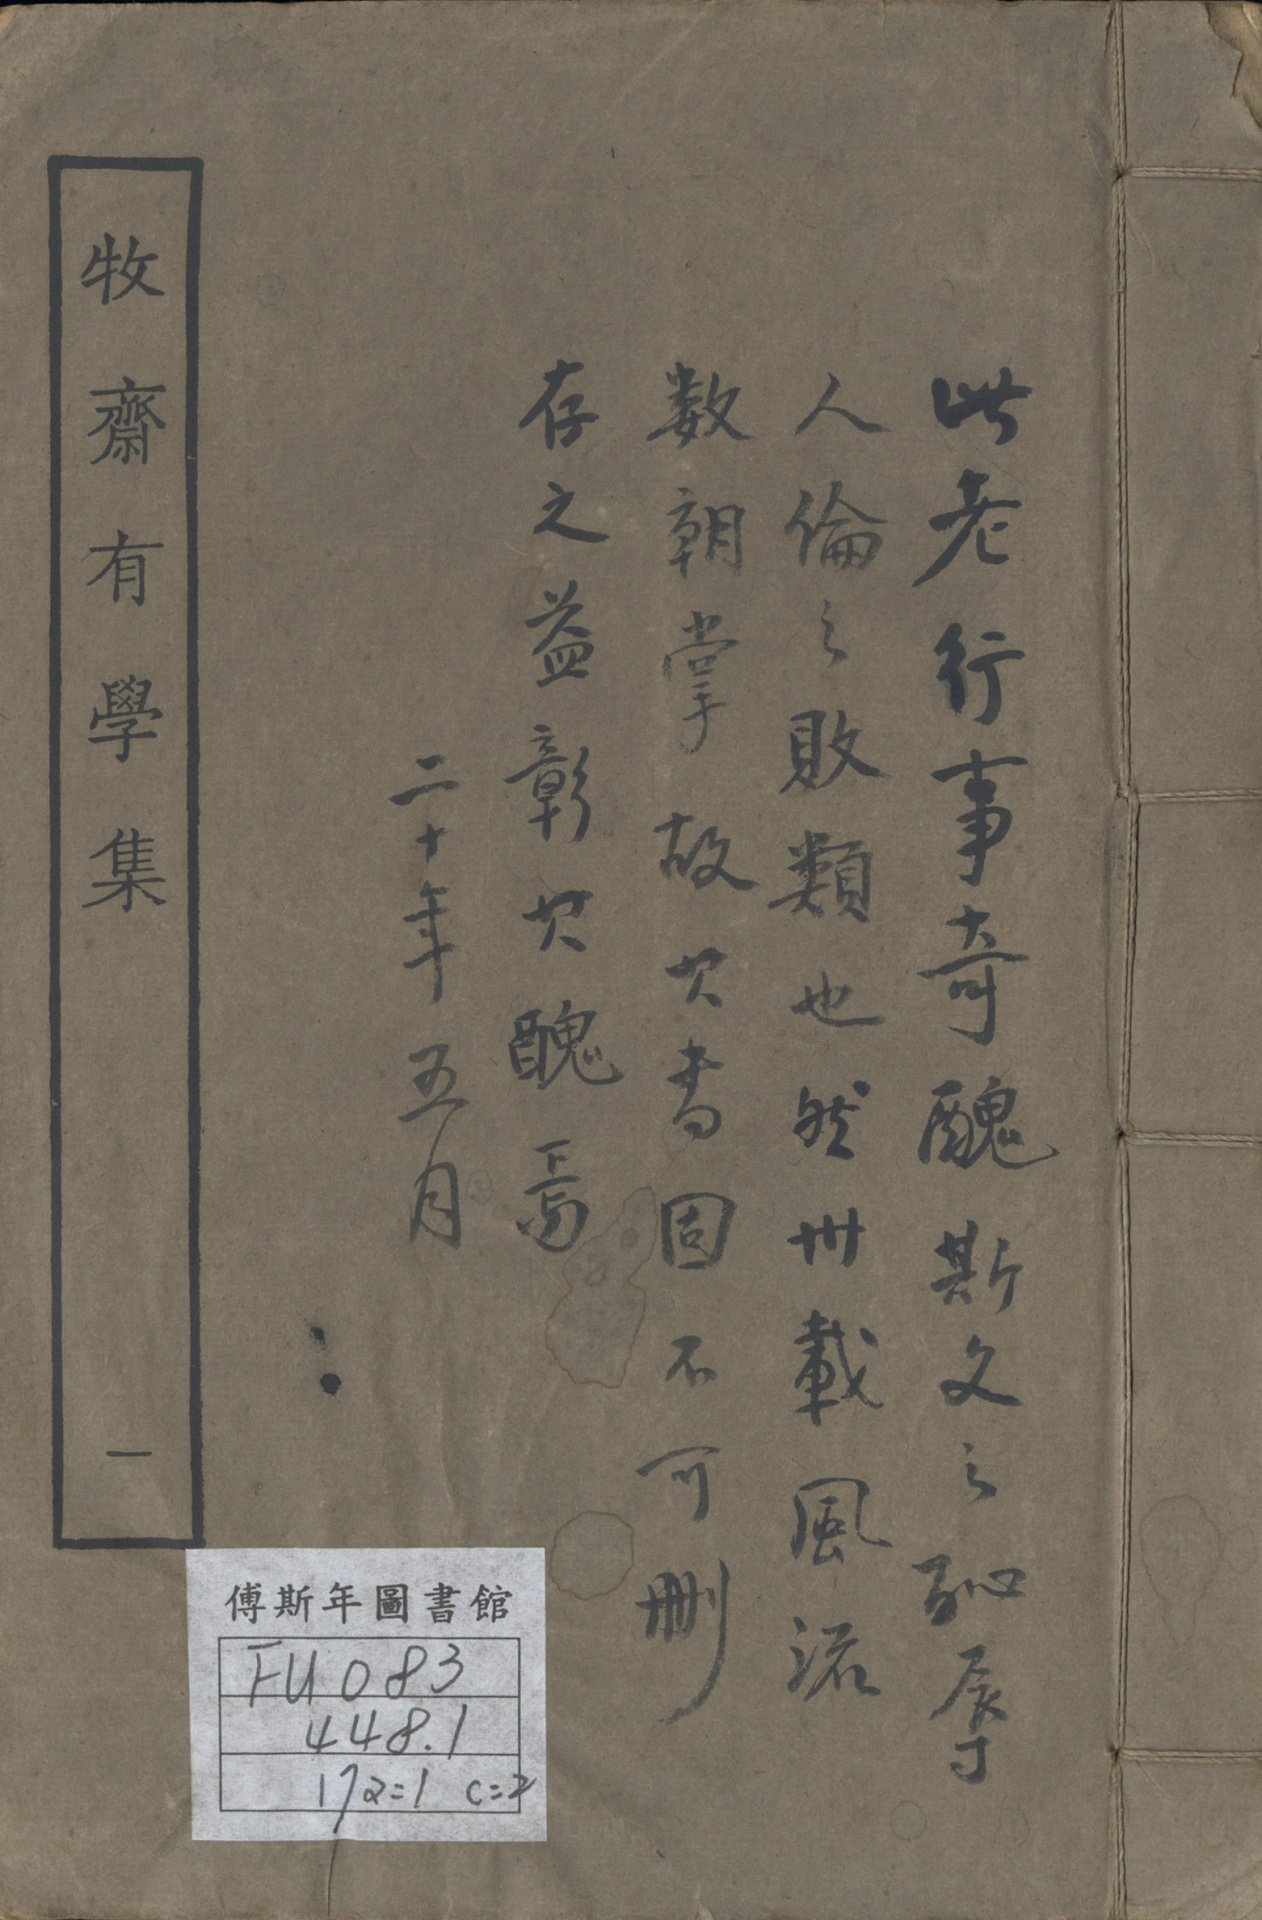 此老行事奇醜斯文之恥辱
人倫之敗類也然卅載風流
数朝掌故其書固不可刪
存之益彰其醜焉
二十年五月
牧齋有學集
一
傅斯年圖書館
FU 083
448.1
172=1 c=2